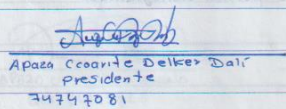 Apaza Ccoarite Delker Dalí
presidente
74747081